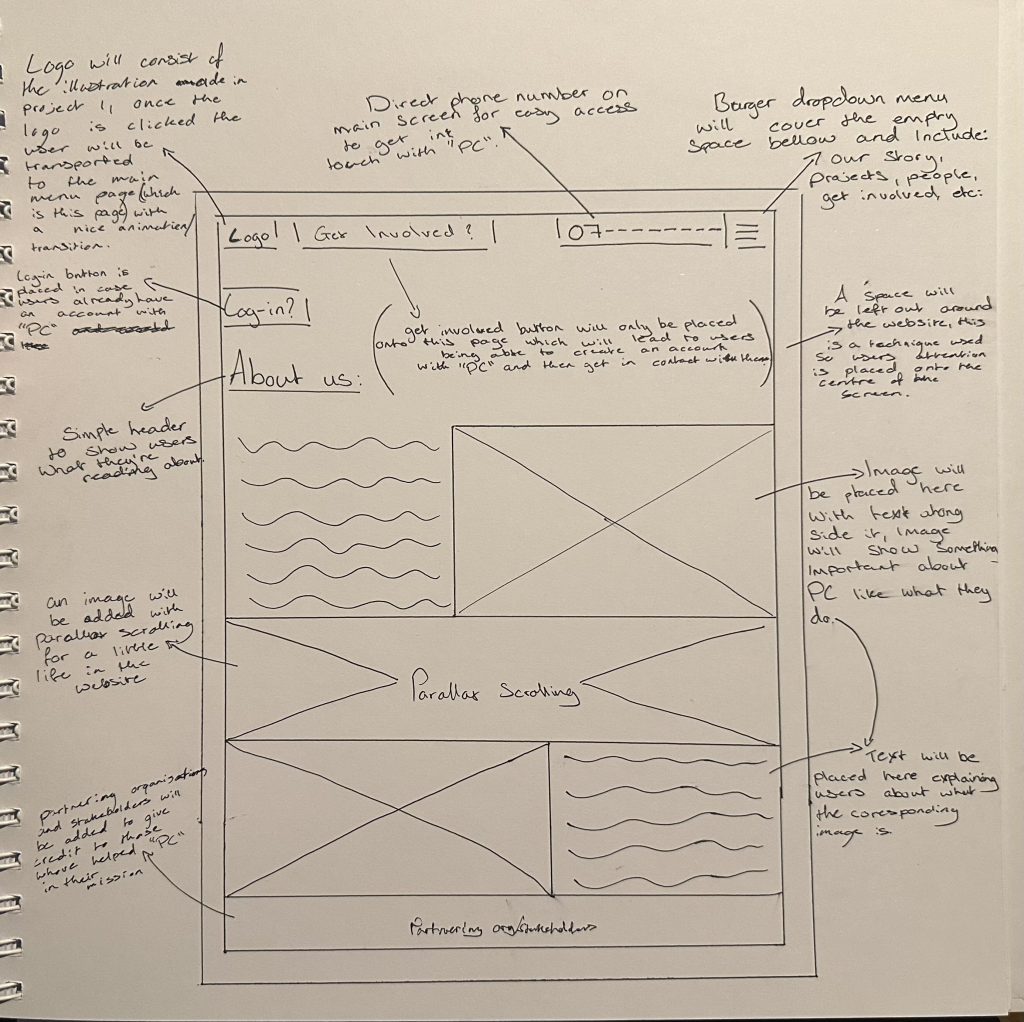 Logo will consist of
the illustration made in
project 1, once the
logo is clicked the
user will be
transported
to the main
menu page (which
is this page) with
a nice animation/
transition.
Direct phone number on
main screen for easy access
to get int
touch with "PC".
Burger dropdown menu
will cover the empty
space bellow and include:
our story,
projects, people,
get involved, etc:
Logo
Get Involved?
07---------
Log-in button is
placed in case
users already have
an account with
"PC"
Log-in?
get involved button will only be placed
onto this page which will lead to users
being able to create an account
with "PC" and then get in contact with them
A space will
be left out around
the website, this
is a technique used
so users attention
is placed onto the
centre of the
screen.
About us:
Simple header
to show users
what they're
reading about.
Image will
be placed here
with text along
side it, Image
will show something
important about
PC like what they
do.
an image will
be added with
parallax scrolling
for a little
life in the
website
Parallax Scrolling
Text will be
placed here explaining
users about what
the coresponding
image is
partnering organisations
and stakeholders will
be added to give
credit to those
whove helped "PC"
in their
mission
Partnering org/stakeholders